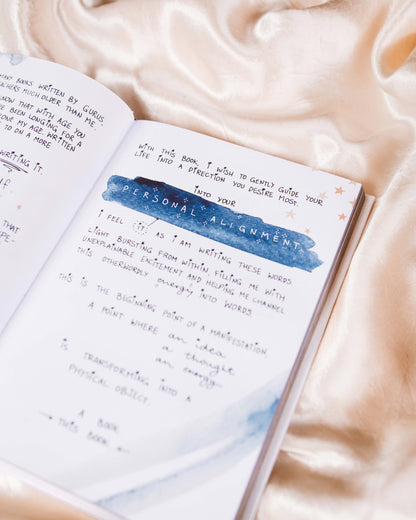 MANY BOOKS WRITTEN BY GURUS
TEACHERS MUCH OLDER THAN ME.
KNOW THAT WITH AGE YOU
BEEN LONGING FOR A
MY AGE. WRITTEN
TO ON A MORE
WRITING IT.
THAT
WITH THIS BOOK, I WISH TO GENTLY GUIDE YOUR
LIFE INTO A DIRECTION YOU DESIRE MOST.
INTO YOUR
PERSONAL ALIGNMENT
I FEEL IT, AS I AM WRITING THESE WORDS
LIGHT BURSTING FROM WITHIN, FILLING ME WITH
UNEXPLAINABLE EXCITEMENT AND HELPING ME CHANNEL
THIS OTHERWORDLY energy INTO WORDS.
THIS IS THE BEGINNING POINT OF A MANIFESTATION.
A POINT WHERE an idea
a thought
an energy
IS TRANSFORMING INTO A
PHYSICAL OBJECT.
A BOOK.
THIS BOOK.